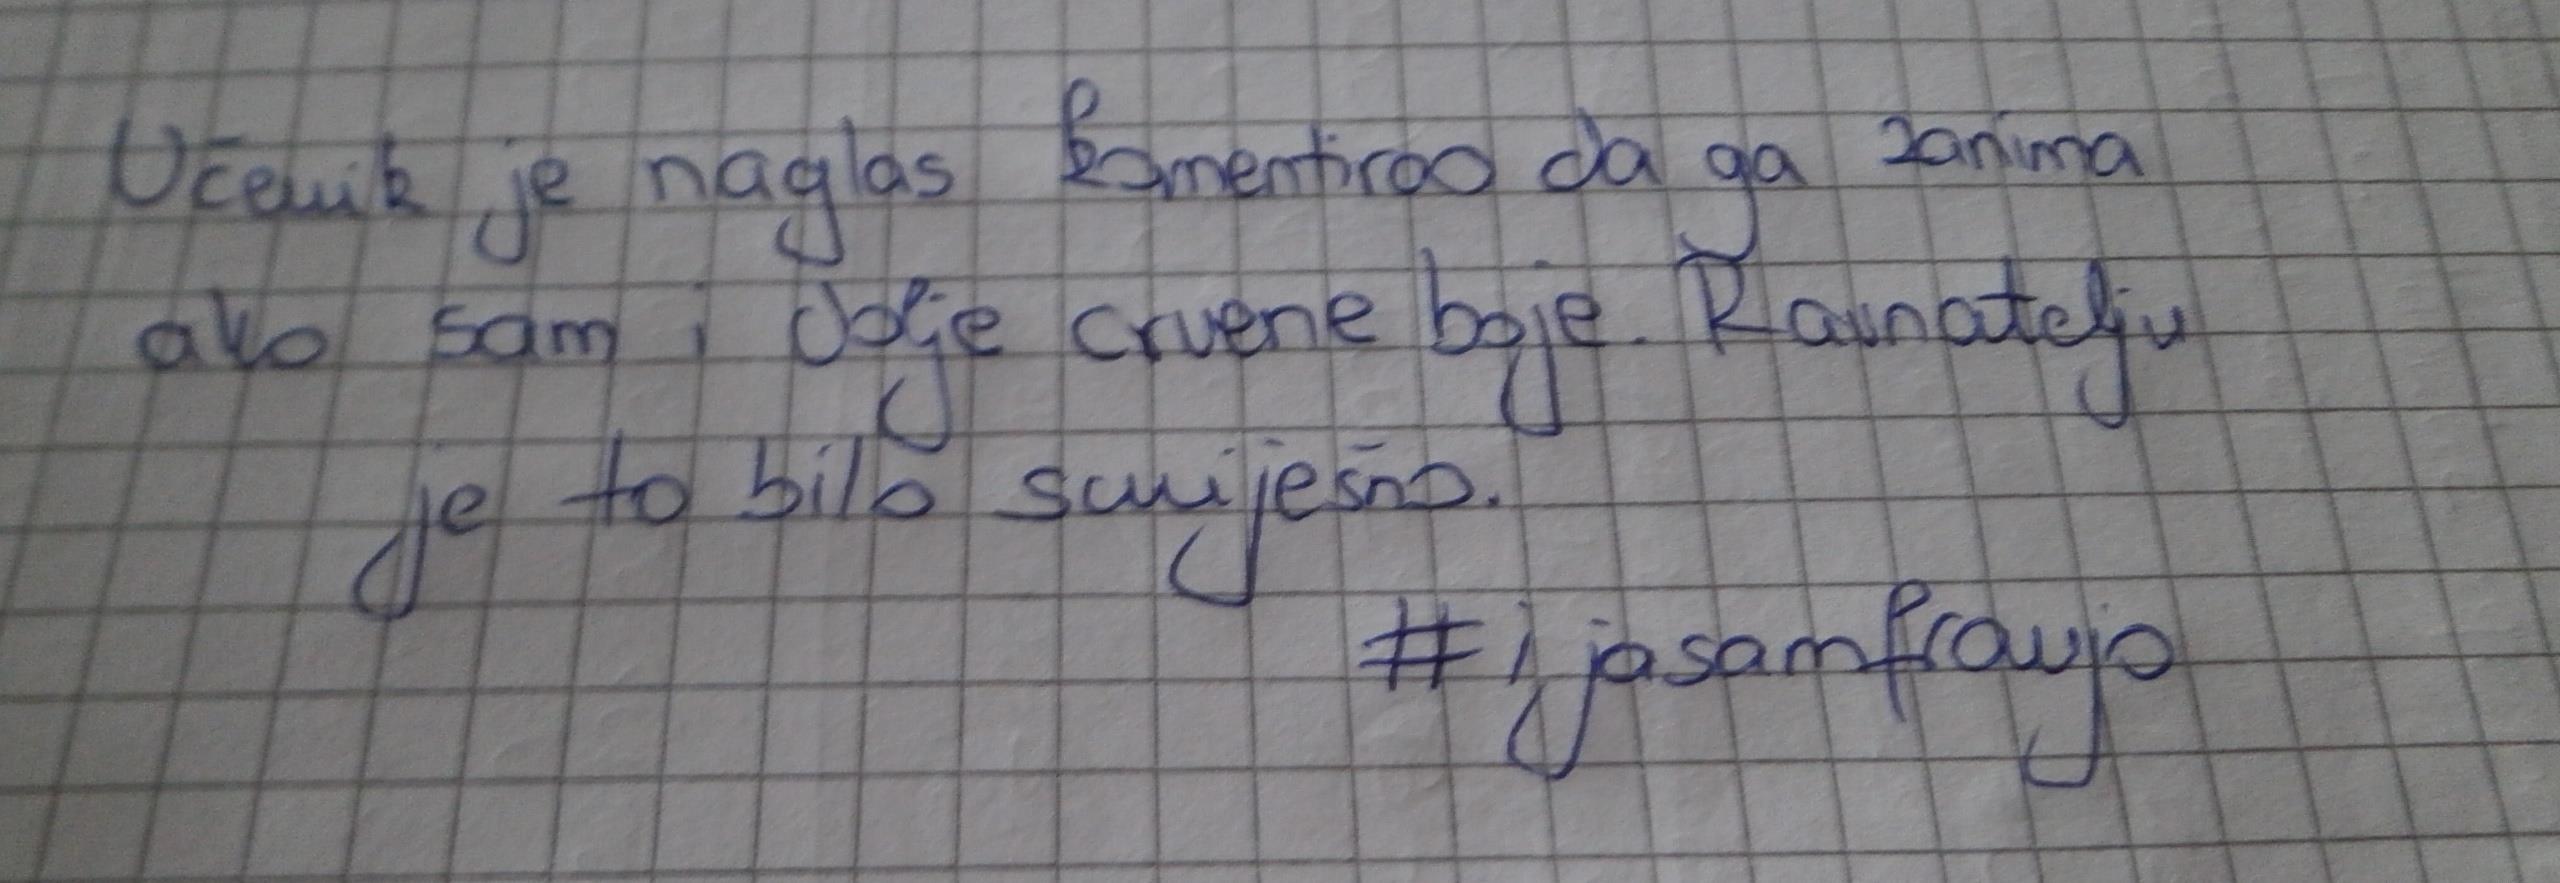 Učenik je naglas komentirao da ga zanima
ako sam i dolje crvene boje. Ravnatelju
je to bilo smiješno.
#ijasamfrayjo